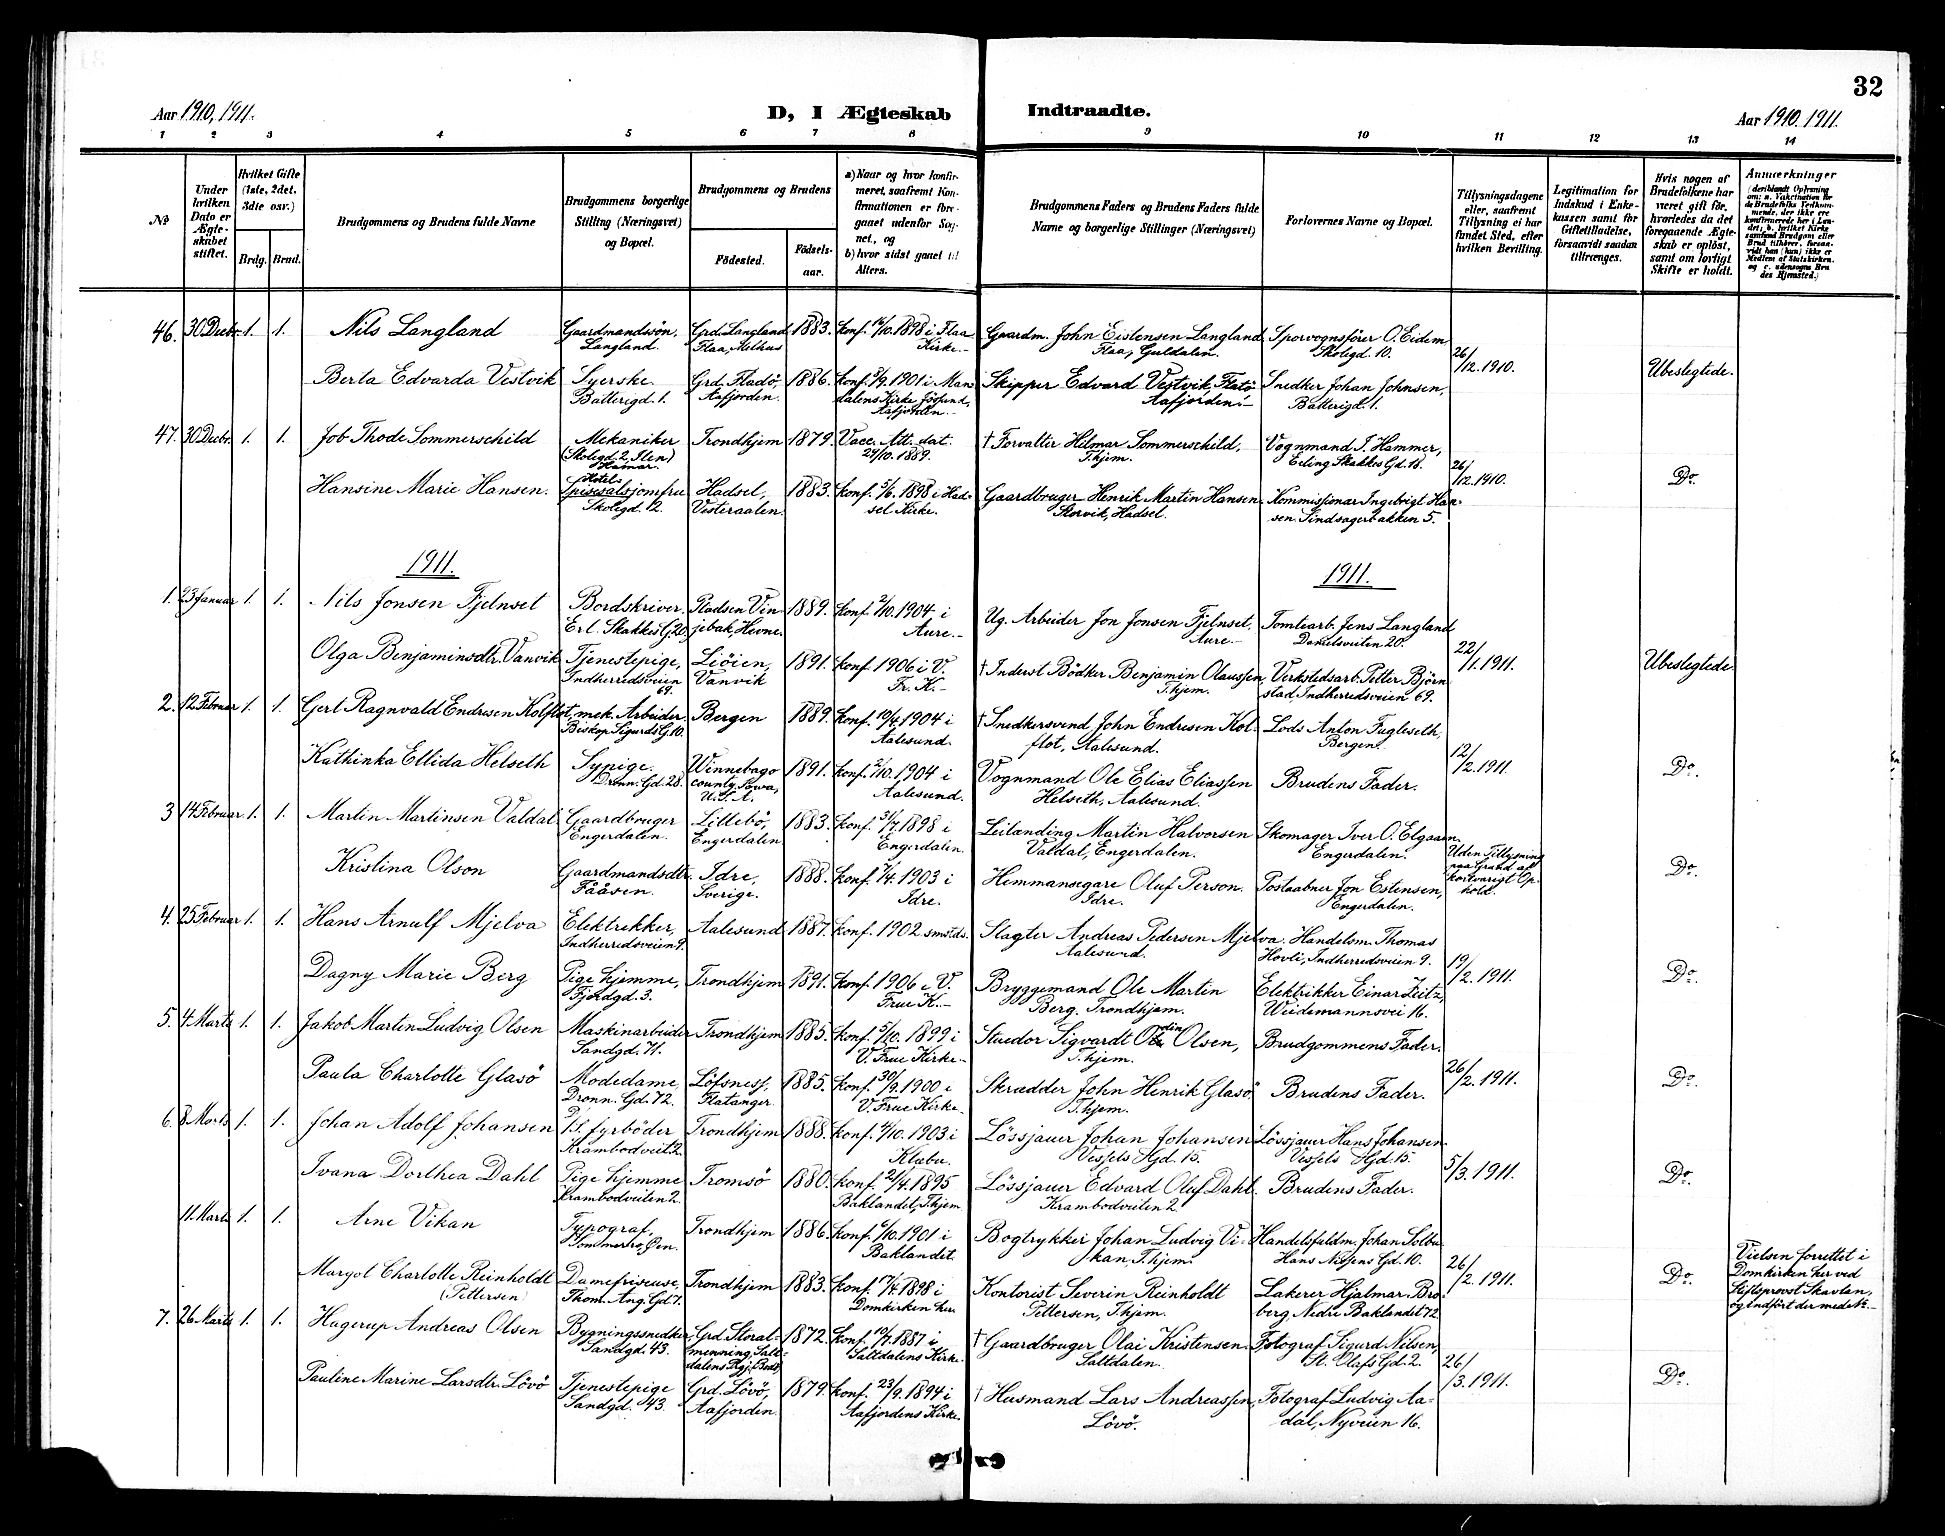 32
Aar 1910, 1911.
D, I Ægteskab Indtraadte.
Aar 1910. 1911.
1 2 3 4 5 6 7 8 9 10 11 12 13 14
No
Under hvilken Dato er Ægteskabet stiftet.
Hvilket Gifte (1ste, 2det, 3die osv.)
Brdg. Brud.
Brudgommens og Brudens fulde Navne
Brudgommens borgerlige Stilling (Næringsvei) og Bopæl.
Brudgommens og Brudens
Fødested.
Fødselsaar.
a) Naar og hvor konfirmeret, saafremt Konfirmationen er foregaaet udenfor Sognet, og
b) hvor sidst gaaet til Alters.
Brudgommens Faders og Brudens Faders fulde Navne og borgerlige Stillinger (Næringsvei)
Forlovernes Navne og Bopæl.
Tillysningsdagene eller, saafremt Tillysning ei har fundet Sted, efter hvilken Bevilling.
Legitimation for Indskud i Enkekassen samt for Giftetilladelse, forsaavidt saadan tiltrænges.
Hvis nogen af Brudefolkene har været gift før, hvorledes da det foregaaende Ægteskab er opløst, samt om lovligt Skifte er holdt.
Anmærkninger
(deriblandt Oplysning om: a. Vakcination for de Brudefolks Vedkommende, der ikke ere konfirmerede her i Landet; b. hvilket Kirkesamfund Brudgom eller Brud tilhører, forsaavidt han (hun) ikke er Medlem af Statskirken. og c. udensogns Brudes Hjemsted.)
46. 30 Decbr. 1. 1. Nils Langland Gaardmandssön, Langland. Grd. Langland Flaa, Melhus 1883. Konf. 16/10. 1898 i Flaa Kirke.- Gaardm. John Eistensen Langland Flaa, Guldalen. Sporvognsförer O. Eidem Skolegd. 10.
26/12. 1910. Ubeslegtede.
Berta Edvarda Vestvik Syerske. Batterigd. 1. Grd. Fladö, Aafjorden. 1886. Konf. 8/9. 1901 i Mandalens Kirke Jössund, Aafjorden.- Skipper Edvard Vestvik, Flatö Aafjorden.- Snedker Johan Johnsen, Batterigd. 1.
47. 30 Decbr. 1. 1. Job Thode Sommerschild Mekaniker (Skolegd. 2, Ilen) Hamar. Trondhjem 1879. Vacc. Att. dat. 24/10. 1889. † Forvalter Hilmar Sommerschild, T.hjem. Vognmand I. Hammer, Erling Skakkes Gd. 18.
26/12. 1910. Do.
Hansine Marie Hansen. Hotels Spisesalsjomfru Skolegd. 12. Hadsel, Vesteraalen. 1883. Konf. 5/6. 1898 i Hadsel Kirke. Gaardbruger Henrik Martin Hansen Storvik, Hadsel. Kommissionær Ingebrigt Hansen. Sindsagerbakken 5.
1911. 1911.
1. 23 Januar 1. 1. Nils Jonsen Fjelnset Bordskriver. Erl. Skakkes G. 20. Rodsen Vinjebak, Hevne. 1889. Konf. 2/10. 1904 i Aure.- Ug. Arbeider Jon Jonsen Fjelnset. Aure.- Tomtearb. Jens Langland Danielsveiten 20.
22/1. 1911. Ubeslegtede
Olga Benjaminsdtr. Vanvik Tjenestepige, Indherredsveien 69. Liöien, Vanvik 1891. Konf. 1906 i V. Fr. K.- † Inderst Bödker Benjamin Olaussen, T.hjem. Verkstedsarb. Petter Björnstad, Indherredsveien 69.
2. 12 Februar 1. 1. Gert Ragnvald Endresen Kolflot, mek. Arbeider Biskop Sigurds G. 10. Bergen 1889. Konf. 10/4 1904 i Aalesund. † Snedkersvend John Endresen Kolflot, Aalesund. Lods Anton Fugleseth, Bergen.
12/2. 1911. Do.
Kathinka Ellida Helseth Sypige. Dronn. Gd. 28. Winnebago county, Iowa, U.S.A. 1891. Konf. 2/10. 1904 i Aalesund. Vognmand Ole Elias Eliassen Helseth, Aalesund. Brudens Fader.
3 14 Februar 1. 1. Martin Martinsen Valdal Gaardbruger Engerdalen. Lillebö, Engerdalen 1883. Konf. 31/7. 1898 i Engerdalen. Leilænding Martin Halvorsen Valdal, Engerdalen. Skomager Iver O. Elgaaen, Engerdalen.
Uden Tillysning paa Grund af kortvarigt Ophold. Do.
Kristina Olson Gaardmandsdtr. Fååsen. Idre, Sverige. 1888. Konf. 7/4. 1903 i Idre. Hemmansegare Oluf Person. Idre. Postaabner Jon Estensen, Engerdalen.
4. 25 Februar 1. 1. Hans Arnulf Mjelva Elektrikker, Indherredsveien 9. Aalesund 1887. Konf. 1902 smstds. Slagter Andreas Pedersen Mjelva. Aalesund. Handelsm. Thomas Hovli, Indherredsveien 9.
19/2. 1911. Do.
Dagny Marie Berg Pige hjemme, Fjordgd. 3. Trondhjem 1891. Konf. 1906 i V. Frue K.- Bryggemand Ole Martin Berg. Trondhjem. Elektrikker Einar Zeitz, Weidemannsvei 16.
5. 4 Marts 1. 1. Jakob Martin Ludvig Olsen Maskinarbeider Sandgd. 71. Trondhjem 1885. Konf. 5/10. 1899 i V. Frue Kirke.- Stuedor Sigvardt Odin Olsen, T.hjem. Brudgommens Fader.
26/2. 1911. Do.
Paula Charlotte Glasö Modedame, Dronn. Gd. 72. Löfsness, Flatanger. 1885. Konf. 30/9. 1900 i V. Frue Kirke. Skrædder John Henrik Glasö, T.hjem. Brudens Fader.
6. 8 Marts 1. 1. Johan Adolf Johansen Fyrböder Krambodveit. 2. Trondhjem 1888. Konf. 4/10. 1903 i Klæbu. Lössjauer Johan Johansen Vessels Hjd. 15. Lössjauer Hans Johansen Vessels Hjd. 15.
5/3. 1911. Do.
Ivana Dorthea Dahl Pige hjemme Krambodveiten 2. Tromsö 1880. Konf. 21/4. 1895 Baklandet, T.hjem Lössjauer Edvard Oluf Dahl. Krambodveiten 2 Brudens Fader.
11. Marts 1. 1. Arne Vikan Typograf, Sommerro, Øen. Trondhjem 1886. Konf. 6/10. 1901 i Baklandet. Bogtrykker Johan Ludvig Vikan, T.hjem. Handelsfuldm. Johan Solbu Hans Nissens Gd. 10.
26/2. 1911. Do. Vielsen forrettet i Domkirken her ved Stiftsprovst Skavlan, og indfört der med No.-
Margot Charlotte Reinholdt (Pettersen) Damefriseuse, Thom. Ang. Gd. 7. Trondhjem 1883. Konf. 17/4. 1898 i Domkirken her. Kontorist Severin Reinholdt Pettersen, T.hjem. Lakerer Hjalmar Broberg, Nedre Baklandet 72.
7. 26 Marts 1. 1. Hagerup Andreas Olsen Bygningssnedker, Sandgd. 43. Grd. Storalmenning, Saltdalens Pgj. Bodö, 1872. Konf. 10/7. 1887 i Saltdalens Kirke. † Gaardbruger Olai Kristensen. Saltdalen. Fotograf Sigurd Nilsen, St. Olafs Gd. 2.
26/3. 1911. Do.
Pauline Marine Larsdtr. Lövö Tjenestepige Sandgd. 43. Grd. Lövö, Aafjorden. 1879. Konf. 23/9. 1894 i Aafjordens Kirke. † Husmand Lars Andreassen, Lövö. Fotograf Ludvig Aadal, Nyveien 16.